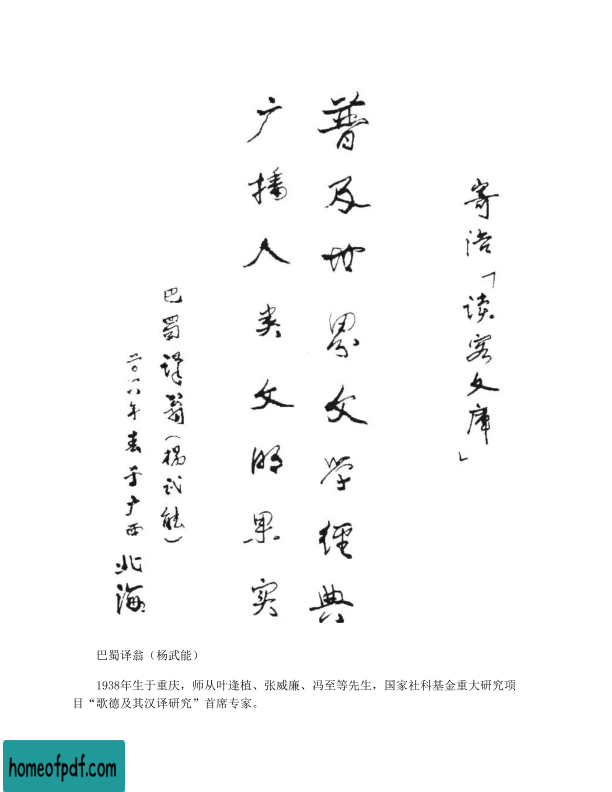 寄语「读客文库」
普及世界文学经典
广播人类文明果实
巴蜀译翁(杨武能)
二〇一八年春于广西北海
巴蜀译翁（杨武能）
1938年生于重庆，师从叶逢植、张威廉、冯至等先生，国家社科基金重大研究项
目“歌德及其汉译研究”首席专家。
homeofpdf.com